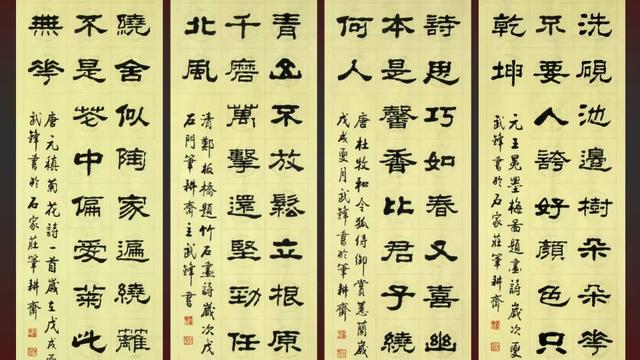 洗硯池邊樹朵朵花
不要人誇好顏色只
乾坤
元王冕墨梅圖題畫詩歲
武鋒書於石家莊筆耕齋
詩思巧如春又喜幽
本是馨香比君子繞
何人
唐杜牧和令狐侍御賞蕙蘭歲
戊戌更月武鋒書於筆耕齋
青山不放鬆立根原
千磨萬擊還堅勁任
北風
清鄭板橋題竹石畫詩歲次戊
石門筆耕齋主武鋒書
繞舍似陶家遍繞籬
不是花中偏愛菊此
無花
唐元稹菊花詩一首歲在戊戌更
武鋒書於石家莊筆耕齋